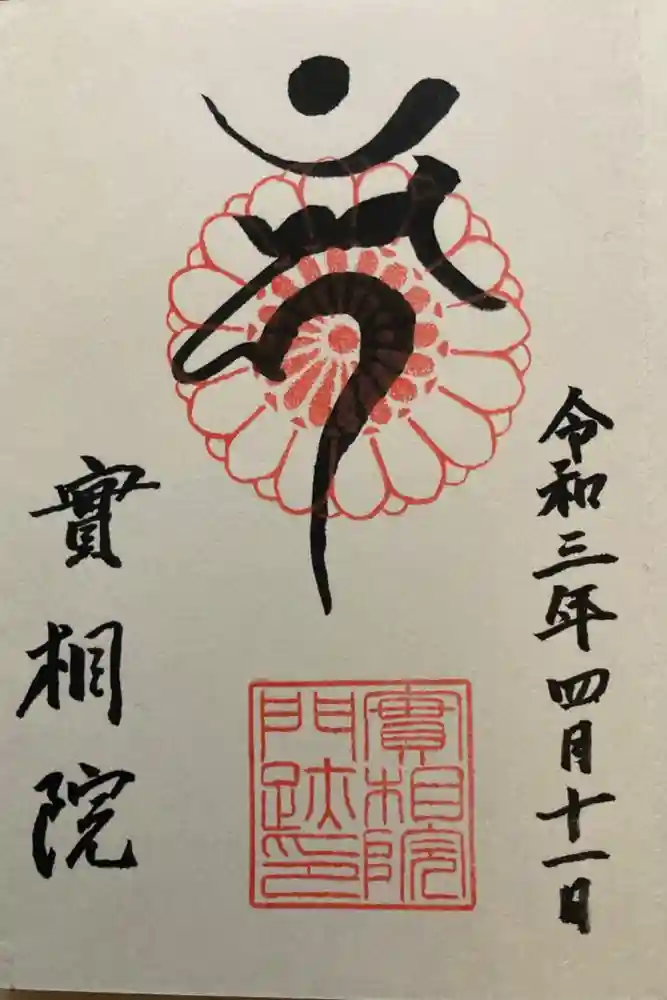 令和三年四月十一日
𑖮𑖿𑖨𑖱𑖾
實相院
實相院
門跡印